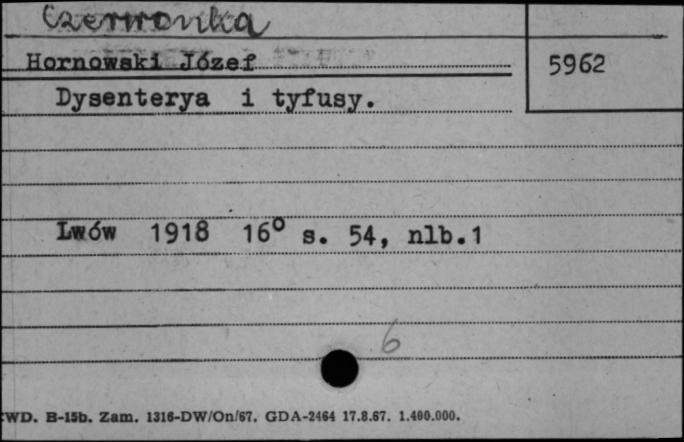 Czerwonka
Hornowski Józef
5962
Dysenterya i tyfusy.
Lwów 1918 16° s. 54, nlb.1
6
WD. B-15b. Zam. 1316-DW/On/67. GDA-2464 17.8.67. 1.400.000.